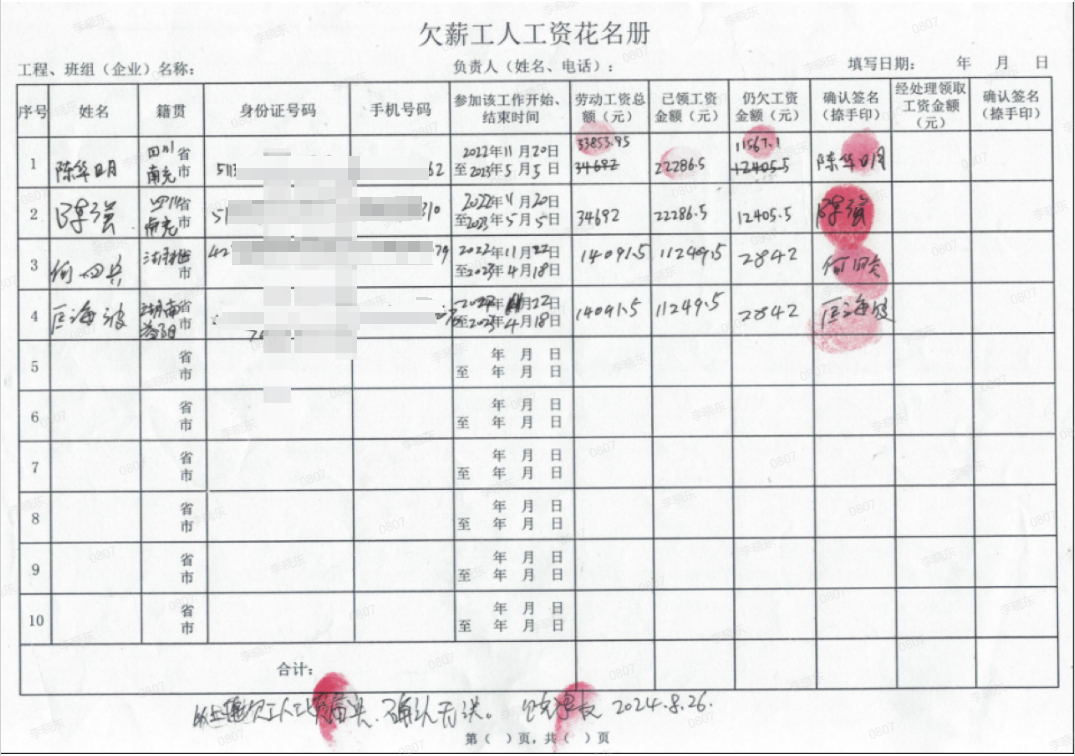 欠薪工人工资花名册
工程、班组（企业）名称： 负责人（姓名、电话）： 填写日期： 年 月 日
序号 姓名 籍贯 身份证号码 手机号码 参加该工作开始、结束时间 劳动工资总额（元） 已领工资金额（元） 仍欠工资金额（元） 确认签名（捺手印） 经处理领取工资金额（元） 确认签名（捺手印）
1 陈华明 四川省 南充 513 62 2022年11月20日 33853.95 11567.1 陈华明
至2023年5月5日 34692 22286.5 12405.5
2 陈强 四川省 南充市 51 310 2022年11月20日
至2023年5月5日 34692 22286.5 12405.5 陈强
3 省 市 42 79 2022年11月22日 14091.5 11249.5 2842
至2023年4月18日
4 匡海波 湖南省 益阳市 2022年11月22日 14091.5 11249.5 2842 匡海波
至2023年4月18日
5 省 年 月 日
市 至 年 月 日
6 省 年 月 日
市 至 年 月 日
7 省 年 月 日
市 至 年 月 日
8 省 年 月 日
市 至 年 月 日
9 省 年 月 日
市 至 年 月 日
10 省 年 月 日
市 至 年 月 日
合计：
欠工人工资 确认无误。 2024.8.26.
第（ ）页，共（ ）页